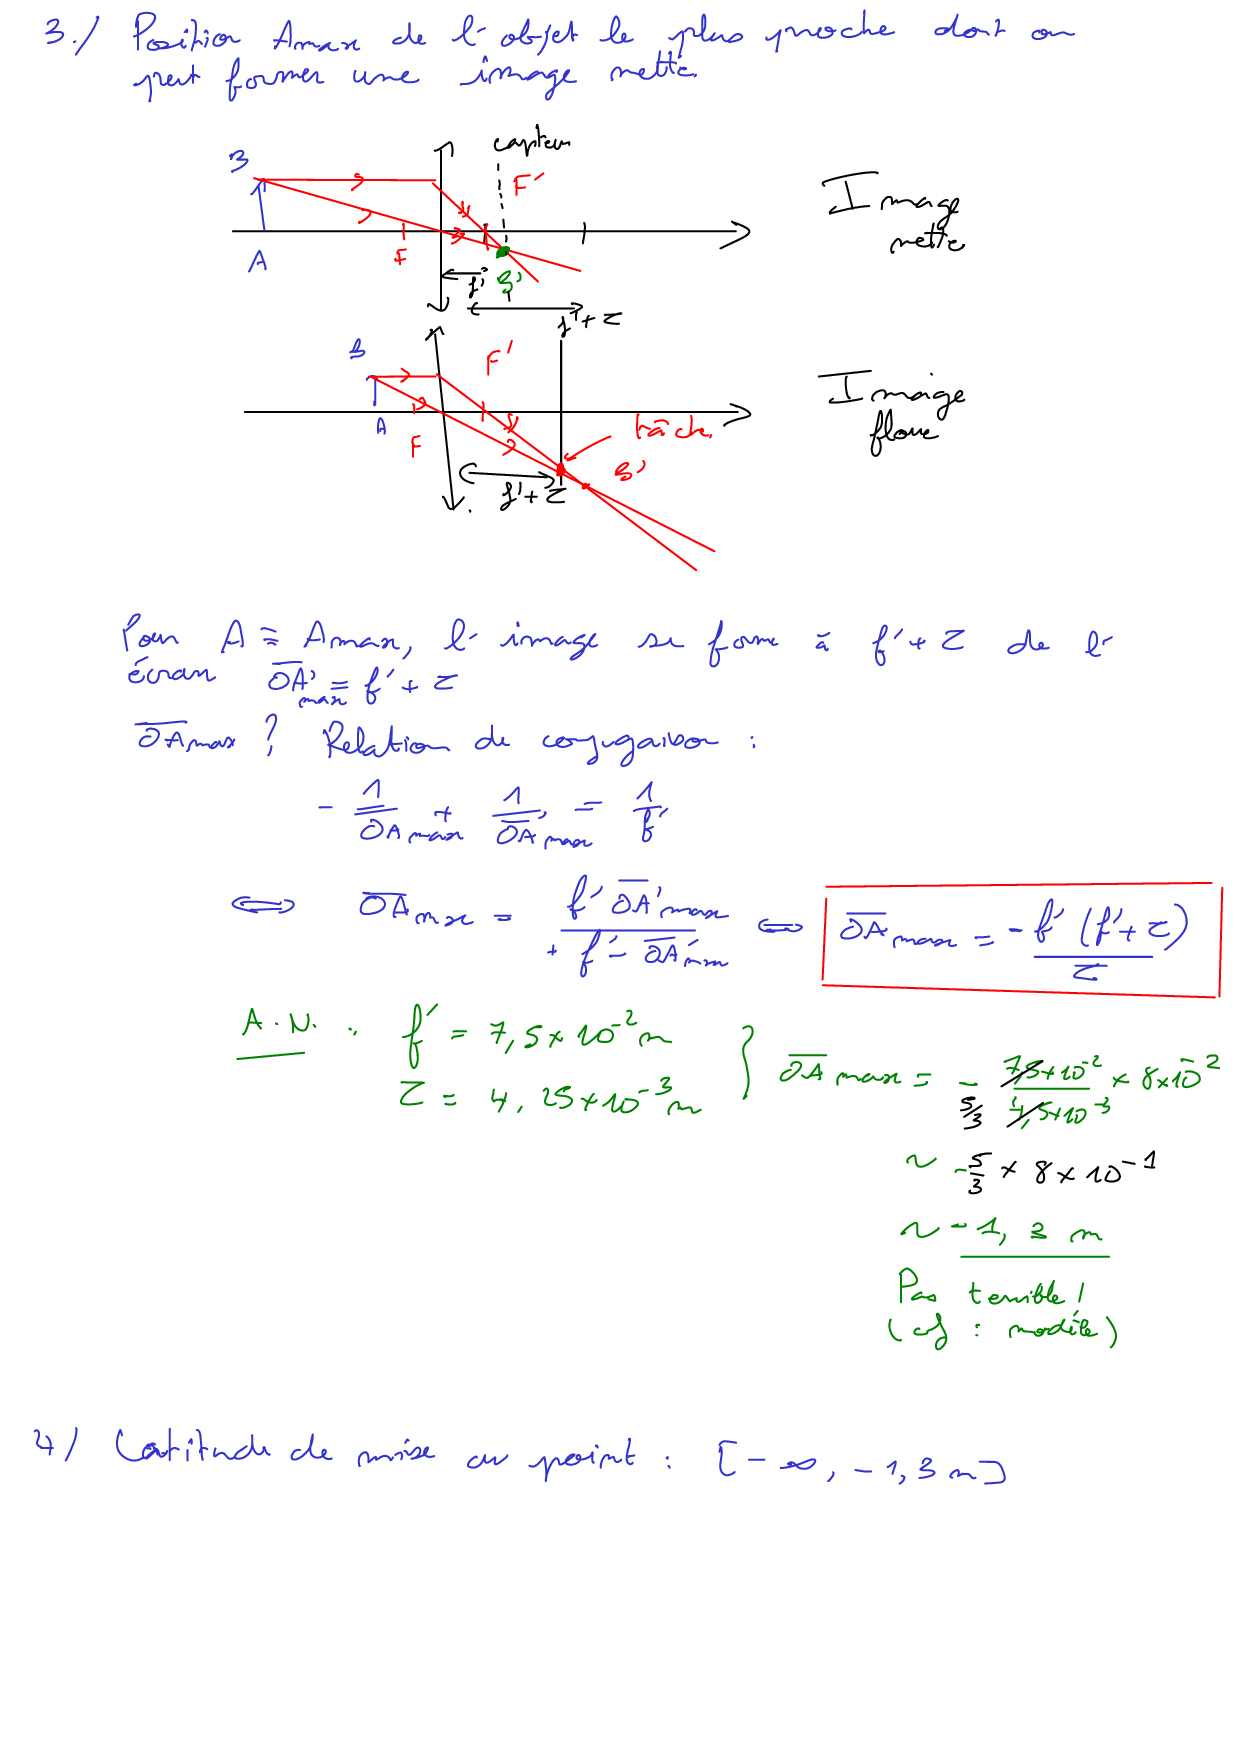 3./ Position Amax de l'objet le plus proche dont on
peut former une image nette.
capteur
B
F'
Image
nette
A
F
f'
B'
f'+τ
B
F'
Image
floue
A
F
tâche
B'
f'+τ
Pour A ≡ Amax, l'image se forme à f'+τ de l'
écran OA'max = f'+τ
OAmax ? Relation de conjugaison :
- 1/OAmax + 1/OA'max = 1/f'
⟺ OAmax = f' OA'max / + f' - OA'max ⟺ OAmax = - f' (f'+τ) / τ
A.N. : f' = 7,5 × 10^-2 m
τ = 4,25 × 10^-3 m } OAmax = - 7,5 × 10^-2 / 4,5 × 10^-3 × 8 × 10^-2
5/3
~ - 5/3 × 8 × 10^-1
~ - 1,3 m
Pas terrible !
(cf : modèle)
4/ Latitude de mise au point : [-∞, -1,3 m]